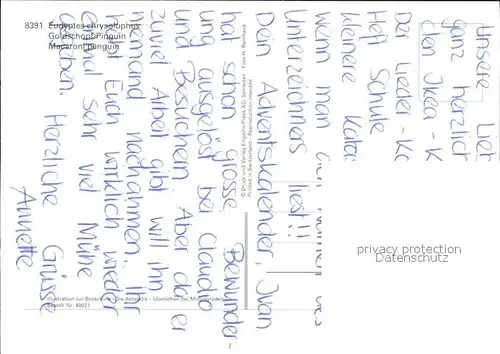 8391 Eudyptes chrysolophus
Goldschopf-Pinguin
Macaroni penguin
Unsere Lie
ganz herzlich
den Ikea-K
Der Lieder-Ka
Heft Schule
Weitere
wenn man
unterzeichners liest!!
Dein Adventskalender, Ivan
hat schon grosse Bewunder-
ung ausgelöst bei Claudio
und Besuchern. Aber da er
zuviel Arbeit gibt will ihn
niemand nachahmen. Ihr
habt Euch wirklich wieder
einmal sehr viel Mühe
gegeben. Herzliche Grüsse
Annette
© Druck und Verlag Engadin Press AG, Samedan Foto H. Reinhard
Printed in Switzerland - Reproduction interdite
Illustration zur Broschüre «Die Antarktis - Überleben bei Minusgraden»
Bestell Nr. 40021
privacy protection
Datenschutz